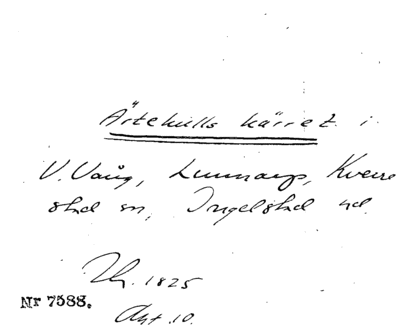 Ärtehulls kärret i
V. Vång, Lunnarp, Kverre
stad sn, Ingelstad hd.
Th. 1825
Nr 7588.
Akt 10.